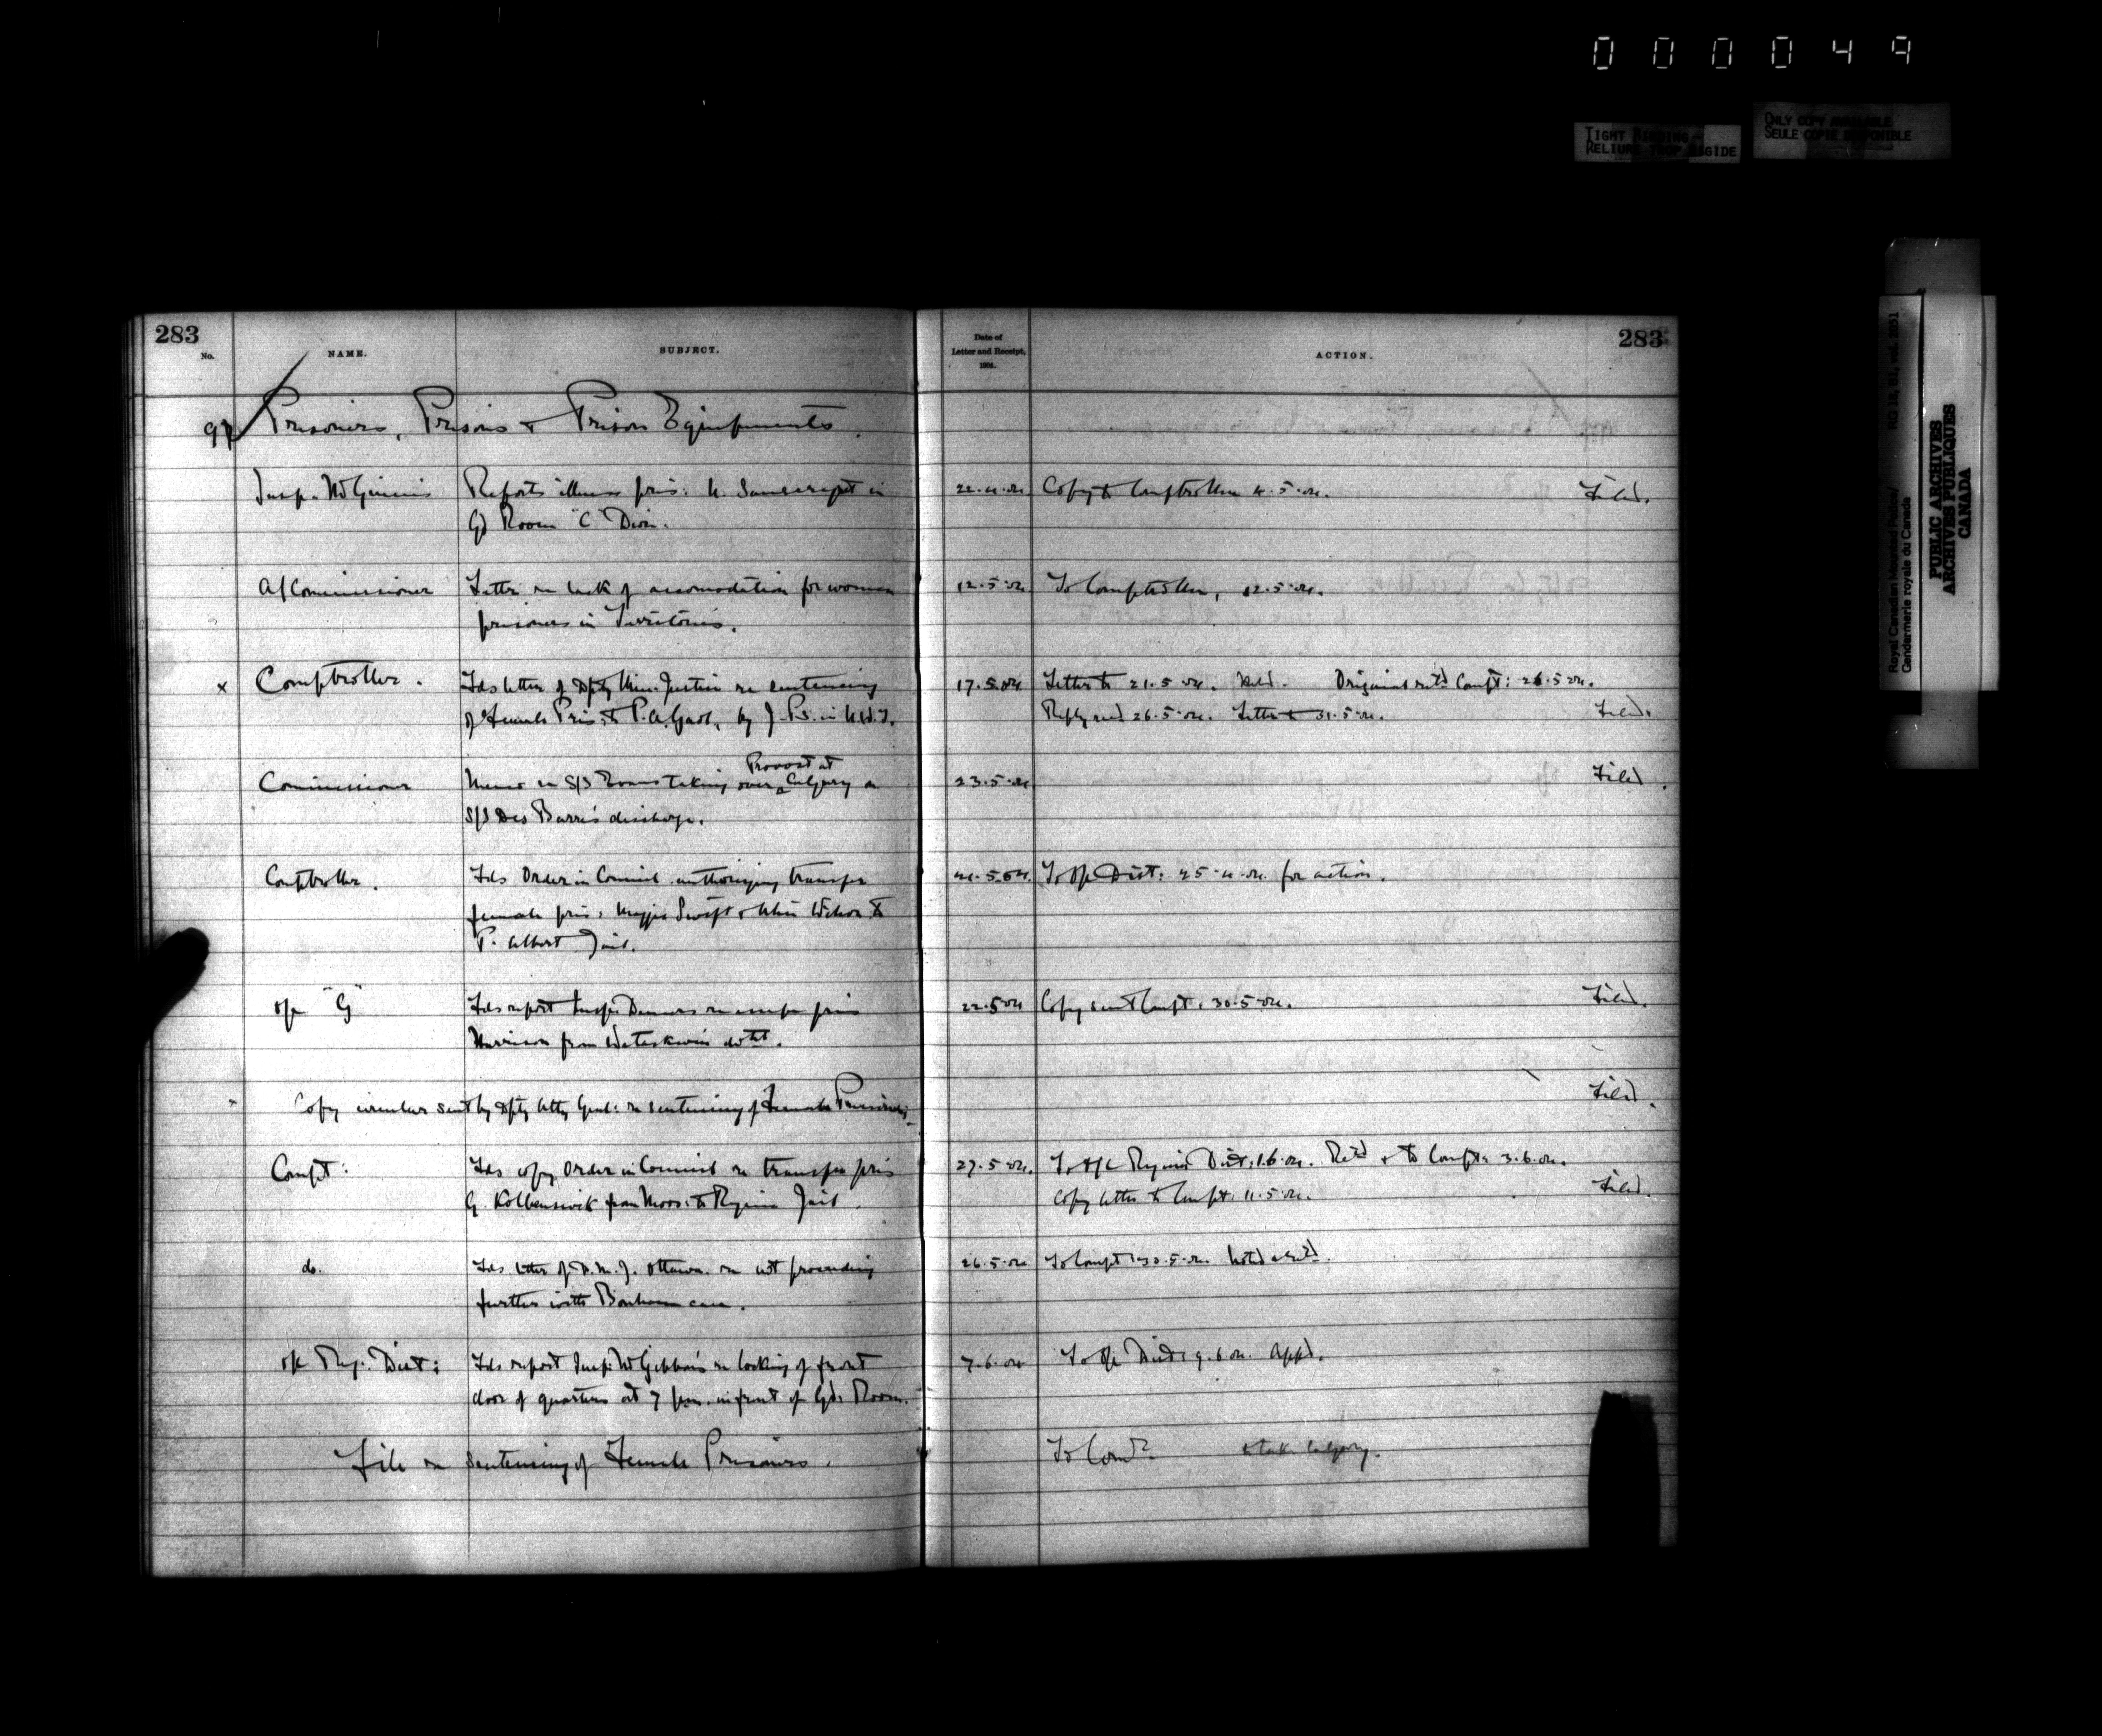 0 0 0 0 4 9
TIGHT BINDING
RELIURE TROP RIGIDE
ONLY COPY AVAILABLE
SEULE COPIE DISPONIBLE
Royal Canadian Mounted Police/
Gendarmerie royale du Canada
RG 18, B1, vol. 2351
PUBLIC ARCHIVES
ARCHIVES PUBLIQUES
CANADA
283
No. NAME. SUBJECT. Date of Letter and Receipt, 1904. ACTION. 283
Prisoners, Prisons & Prison Equipments.
Insp. McGinnis Reports illness pris: in 22.4.04 Copy to Comptroller 4.5.04. Filed.
Gd Room "C" Divn.
A/Commissioner Letter re lack of accomodation for women 12.5.04 To Comptroller, 12.5.04.
prisoners in Territories.
x Comptroller. Fds letter of Dpty Min. Justice re sentencing 17.5.04 Letter to 21.5.04. Original retd Compt: 26.5.04.
of Female Pris: to P.A. Gaol, by J.Ps. in N.W.T. Reply recd 26.5.04. Letter to 31.5.04. Filed.
Provost at
Commissioner Memo re S/S taking over Calgary on 23.5.04 Filed.
S/S Des Barres discharge.
Comptroller. Fds Order in Council authorizing transfer To O/C Dist: for action.
female pris: Maggie Swift & Wilson to
P. Albert Jail.
O/C "G" Fds report Insp. re escape pris 22.5.04 Copy sent Compt. 30.5.04. Filed.
Harrison from Wetaskiwin detht.
Copy circular sent by Dpty Atty Genl: re sentencing of Female Prisoners. Filed.
Compt: Fds copy Order in Council re transfer pris 27.5.04. To O/C Regina Dist: 1.6.04. Retd & to Compt: 3.6.04.
G. from Moos: to Regina Jail. Copy letter to Compt. 11.5.04. Filed.
do. Fds letter of D.M.J. Ottawa re not proceeding 26.5.04 To Compt: 30.5.04. Noted & retd.
further with case.
O/C Reg. Dist: Fds report Insp: McGibbon's re locking of front 7.6.04 To O/C Dist: 9.6.04. Appd.
door of quarters at 7 p.m. in front of Gd. Room.
File re sentencing of Female Prisoners. To Comr. to take Calgary.